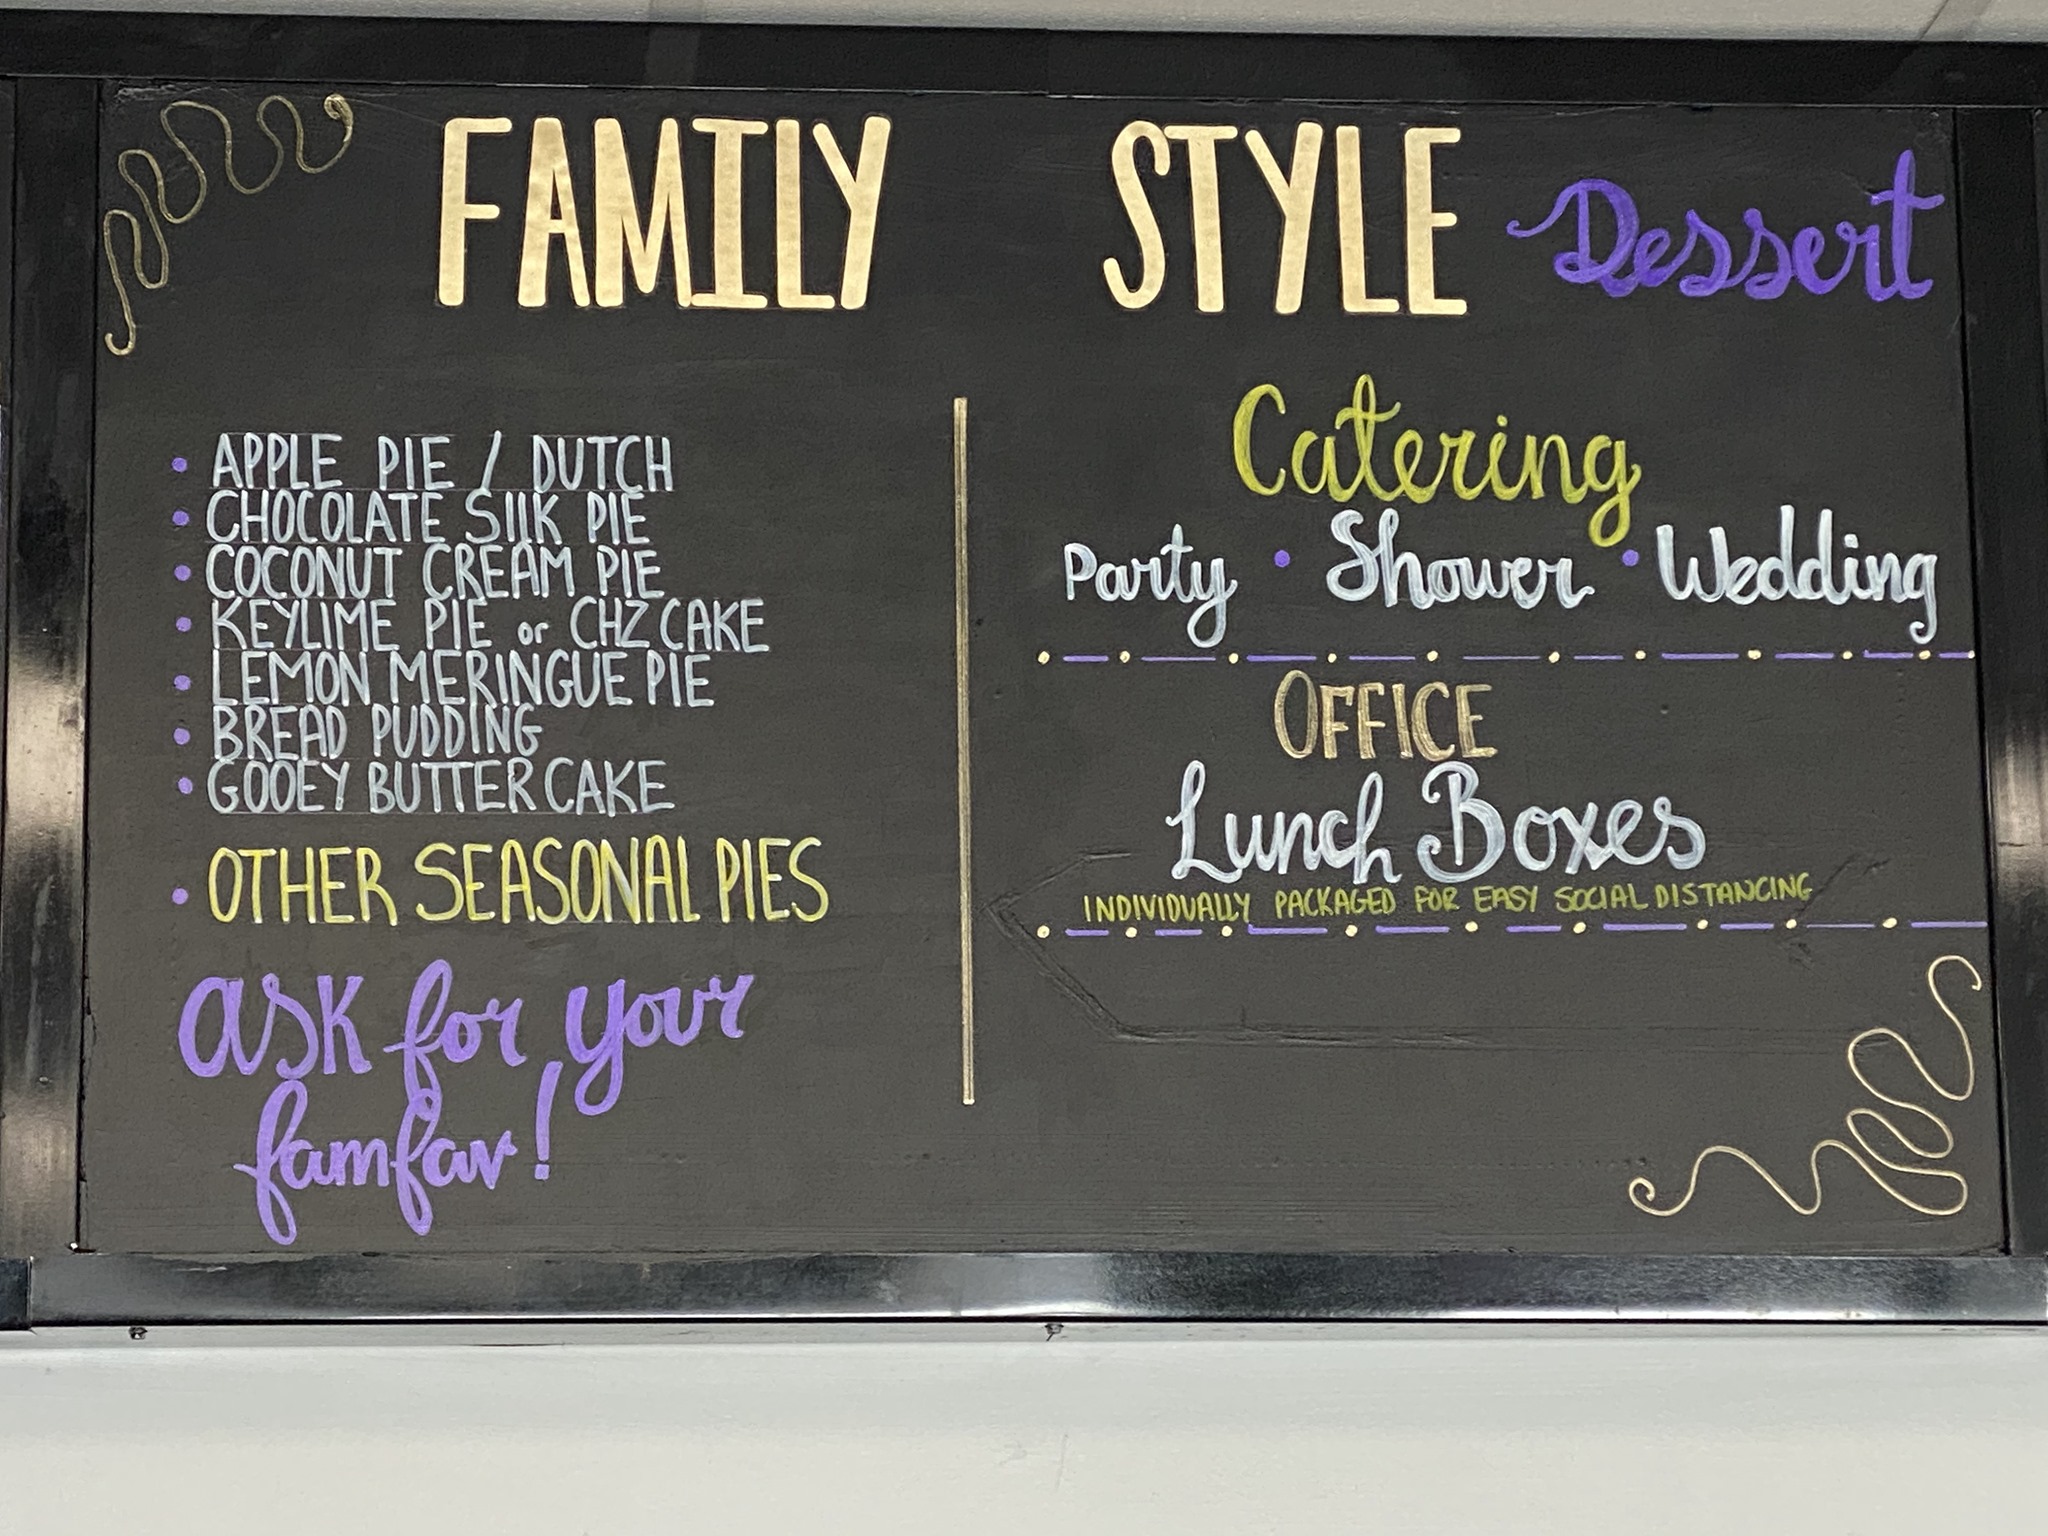 FAMILY STYLE Dessert
• APPLE PIE / DUTCH
• CHOCOLATE SILK PIE
• COCONUT CREAM PIE
• KEYLIME PIE or CHZ CAKE
• LEMON MERINGUE PIE
• BREAD PUDDING
• GOOEY BUTTER CAKE
• OTHER SEASONAL PIES
ask for your
famfav!
Catering
Party • Shower • Wedding
OFFICE
Lunch Boxes
INDIVIDUALLY PACKAGED FOR EASY SOCIAL DISTANCING